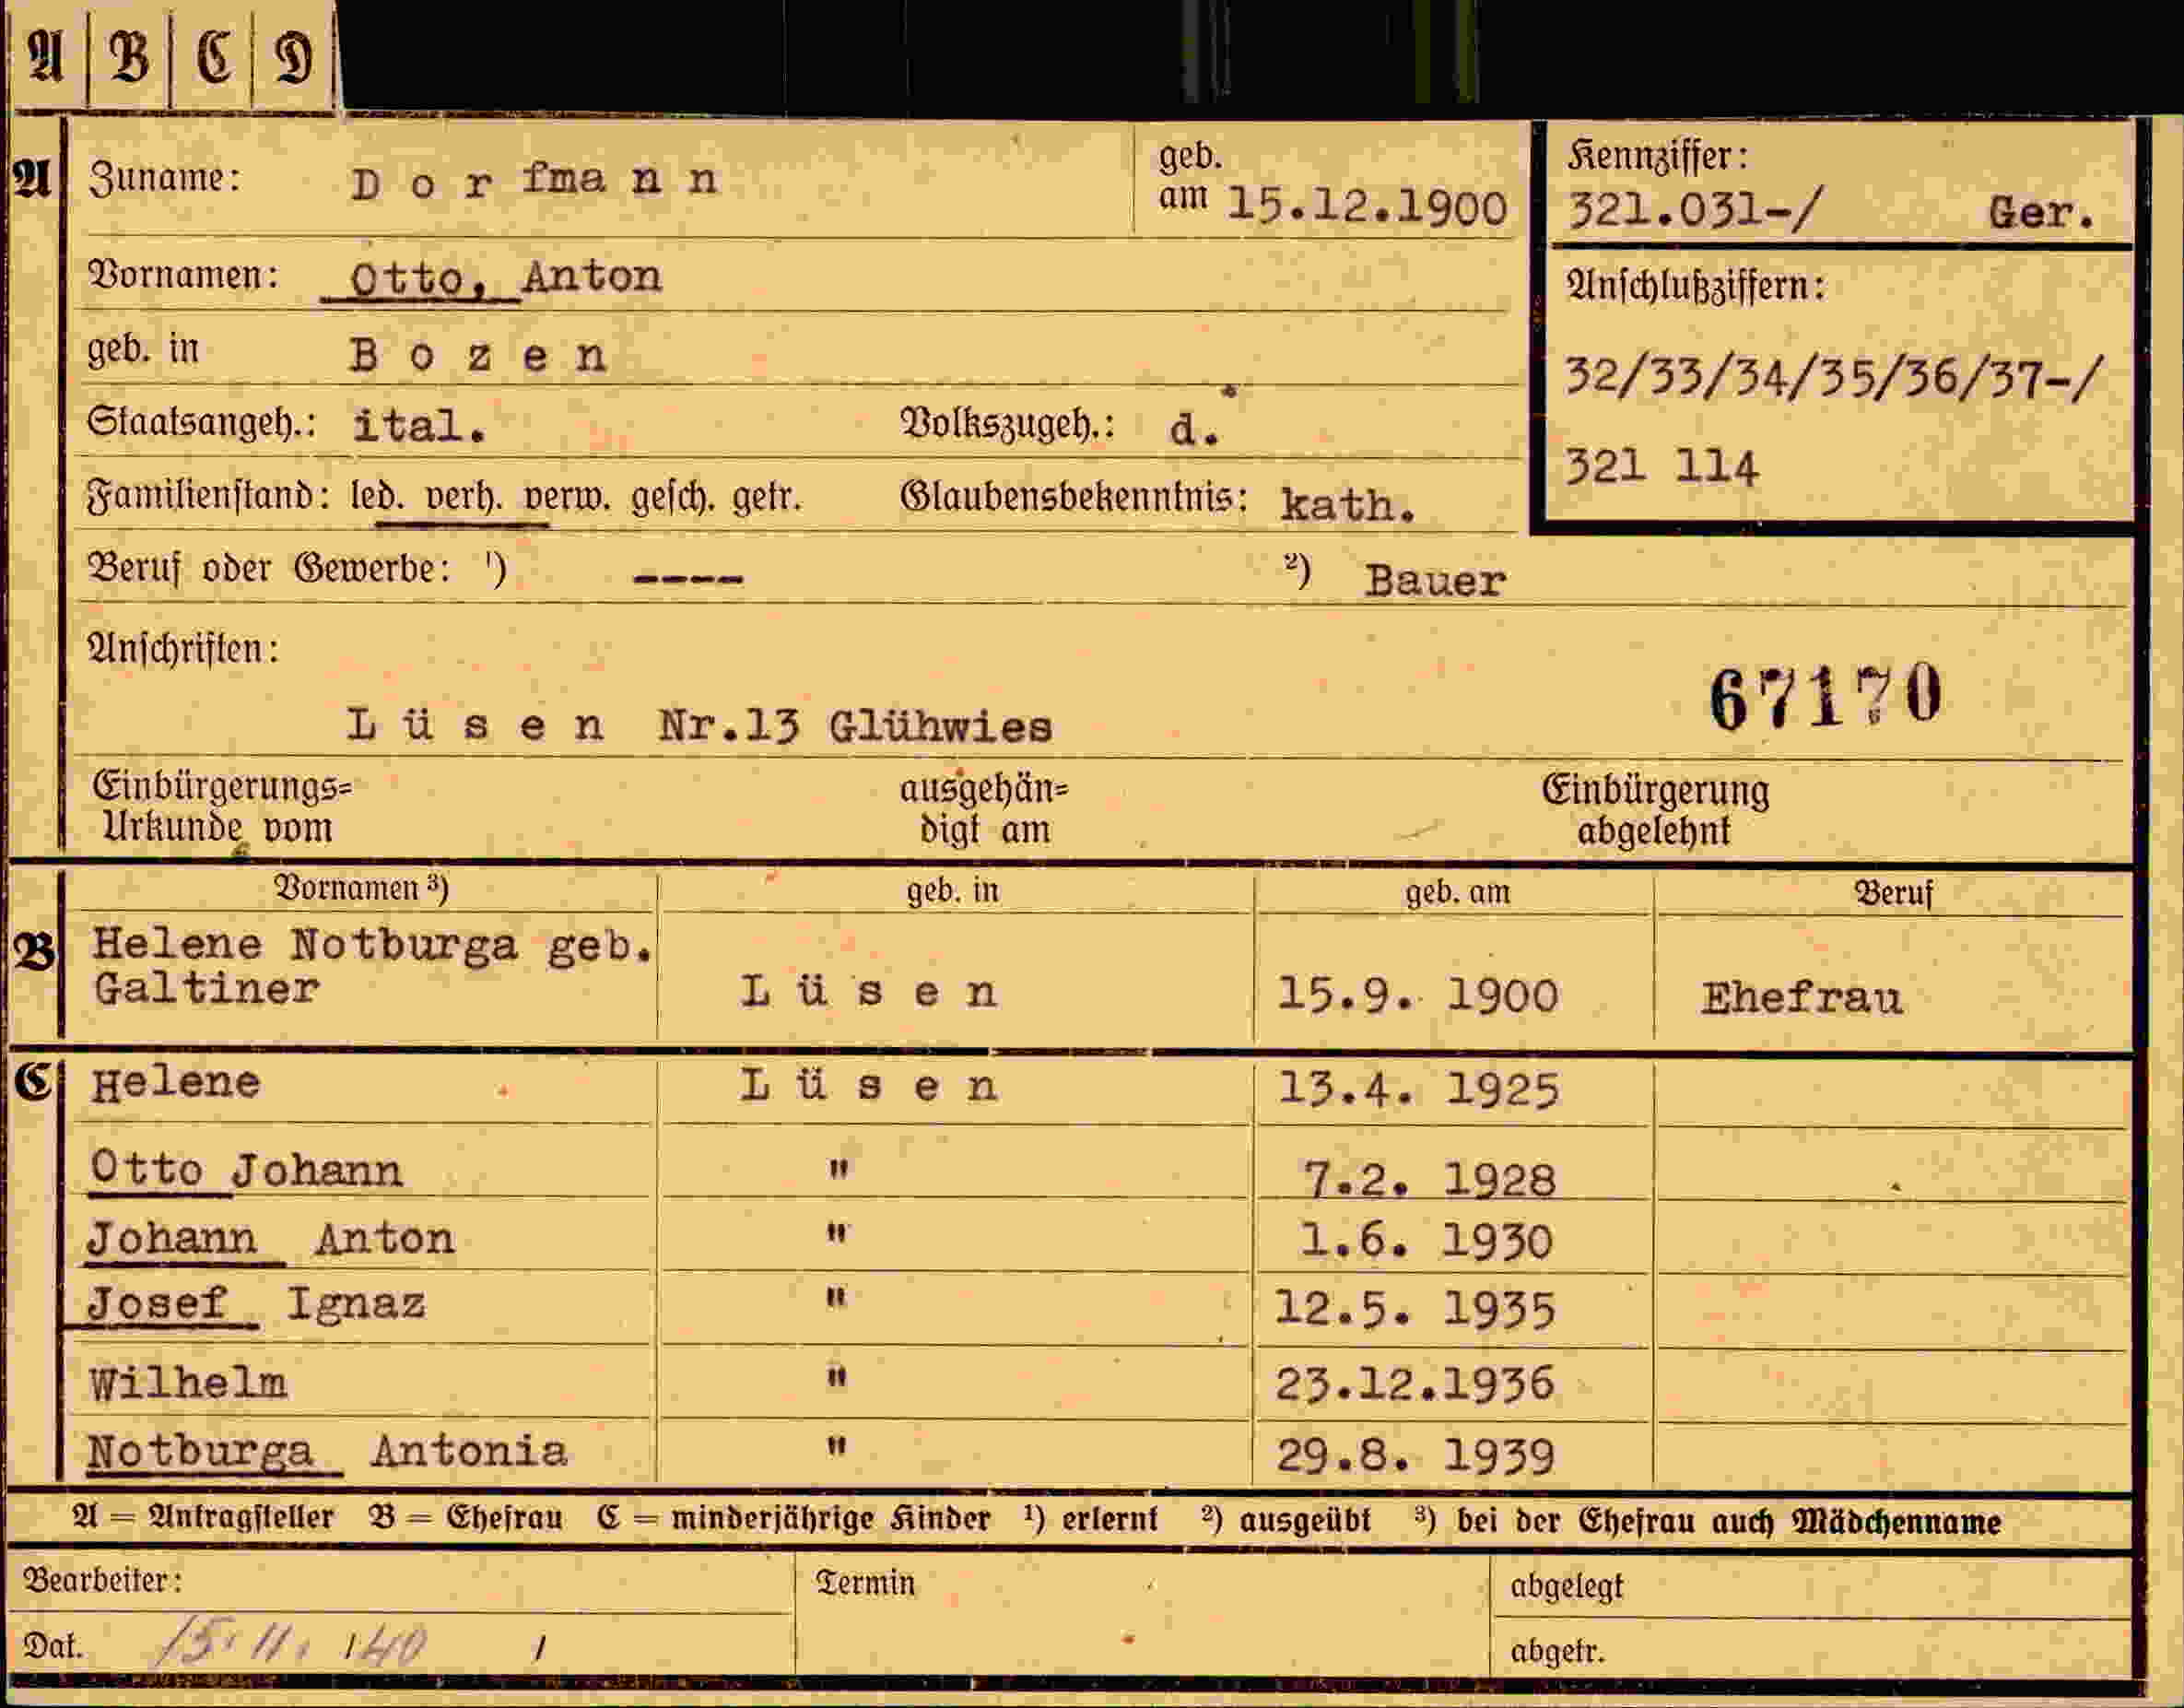 A B C D
A Zuname: Dorfmann geb. am 15.12.1900
Kennziffer:
321.031-/ Ger.
Vornamen: Otto, Anton
Anschlußziffern:
geb. in Bozen
32/33/34/35/36/37-/
Staatsangeh.: ital. Volkszugeh.: d.
321 114
Familienstand: led. verh. verw. gesch. getr. Glaubensbekenntnis: kath.
Beruf oder Gewerbe: ¹) ---- ²) Bauer
Anschriften:
67170
Lüsen Nr.13 Glühwies
Einbürgerungs= ausgehän= Einbürgerung
Urkunde vom digt am abgelehnt
Vornamen ³) geb. in geb. am Beruf
B Helene Notburga geb.
Galtiner Lüsen 15.9. 1900 Ehefrau
C Helene Lüsen 13.4. 1925
Otto Johann " 7.2. 1928
Johann Anton " 1.6. 1930
Josef Ignaz " 12.5. 1935
Wilhelm " 23.12.1936
Notburga Antonia " 29.8. 1939
A = Antragsteller B = Ehefrau C = minderjährige Kinder ¹) erlernt ²) ausgeübt ³) bei der Ehefrau auch Mädchenname
Bearbeiter: Termin abgelegt
Dat. 15.11.140 / abgetr.